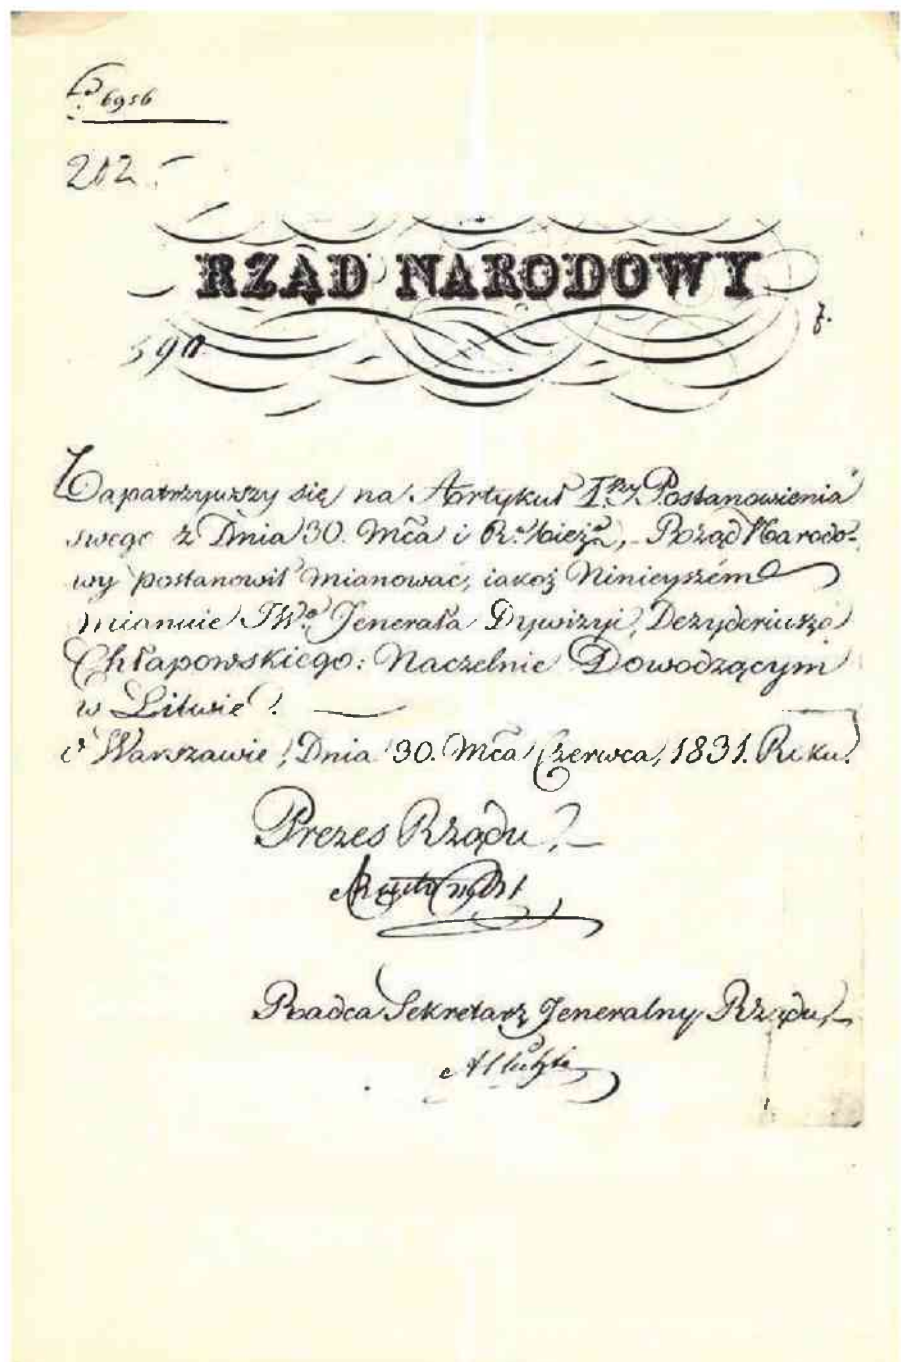 6956
212.
RZĄD NARODOWY
590
Zapatrzywszy się na Artykuł I.szy Postanowienia
swego z Dnia 30. Mca i R. bieżą, Rząd Narodo-
wy postanowił mianować, iakoż Ninieyszém
mianuie JW. Jenerała Dywizyi, Dezyderiusza
Chłapowskiego: Naczelnie Dowodzącym
w Litwie.
w Warszawie, Dnia 30. Mca Czerwca, 1831. Roku.
Prezes Rządu,
Radca Sekretarz Jeneralny Rządu,